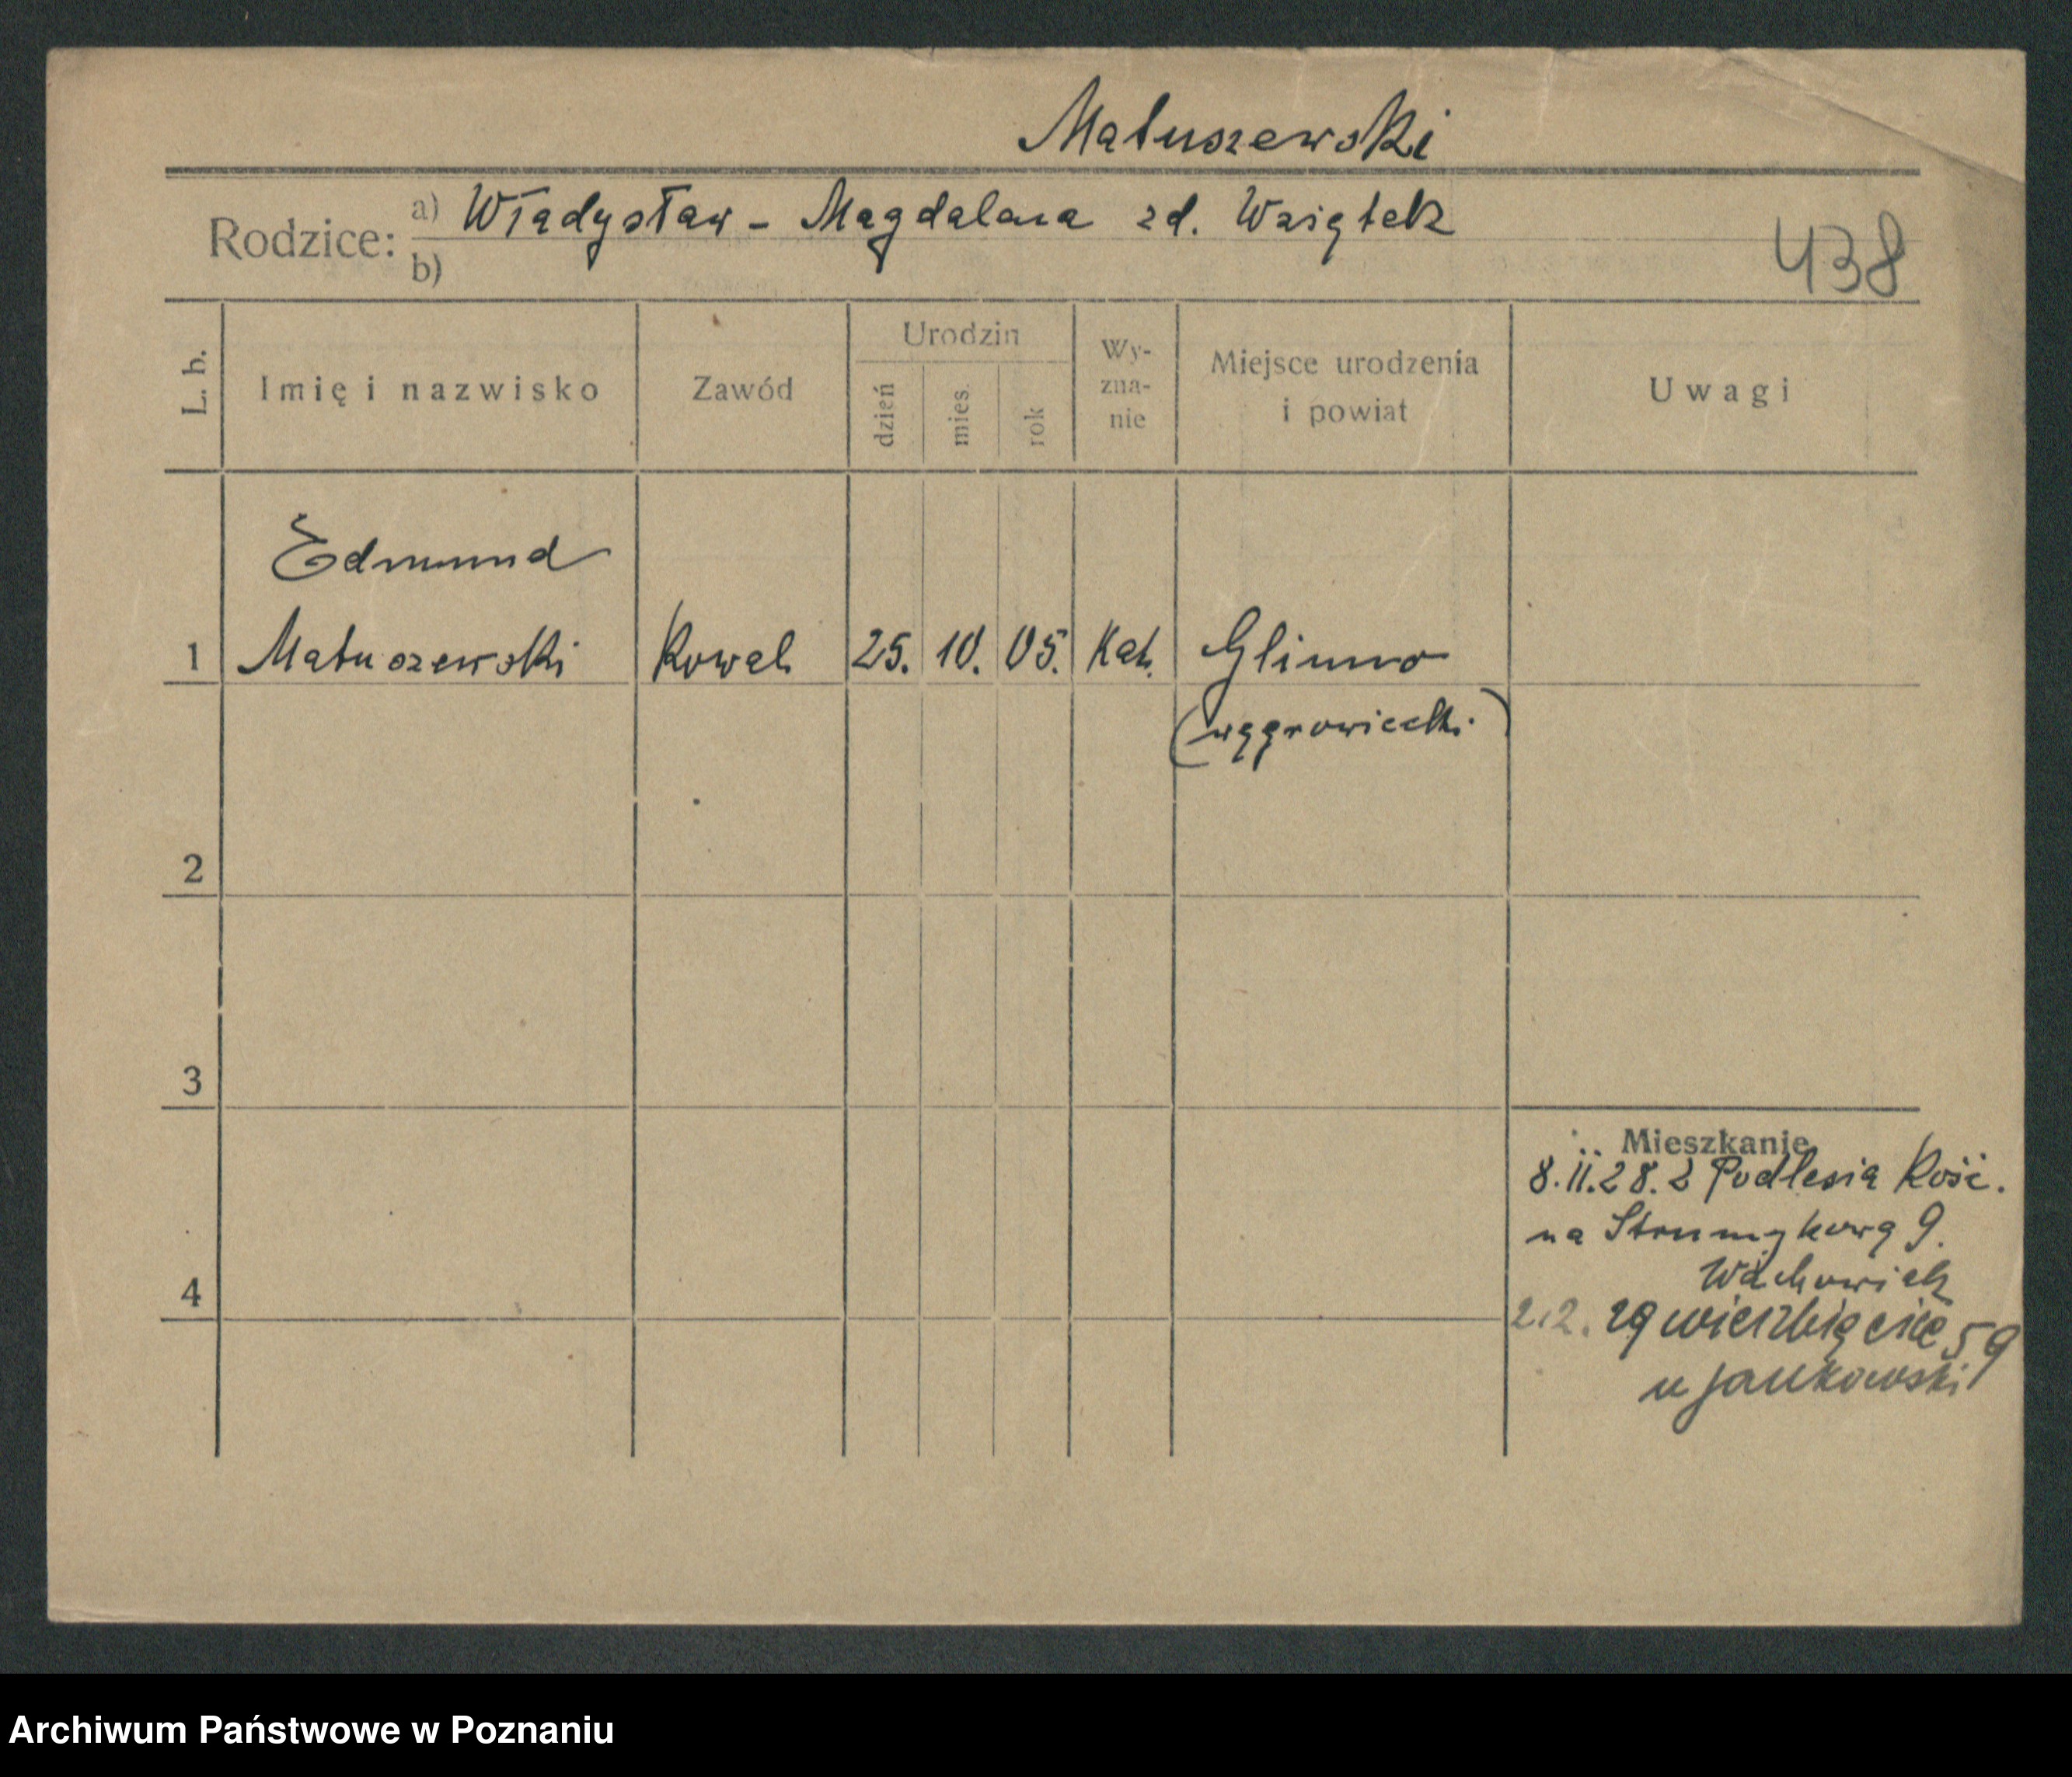 Matuszewski
Rodzice: a) Władysław - Magdalena zd. Wziątek
b)
438
L. b.
Imię i nazwisko
Zawód
Urodzin
dzień
mies.
rok
Wy-
zna-
nie
Miejsce urodzenia
i powiat
Uwagi
Edmund
1 Matuszewski Kowal 25. 10. 05. Kat. Glinno
(wągrowiecki)
2
3
Mieszkanie
8.11.28. z Podlesia Kość.
na Strumykową 9.
Wachowiak
4
2.12. 29 wierzbięcice 59
u Jankowski
Archiwum Państwowe w Poznaniu